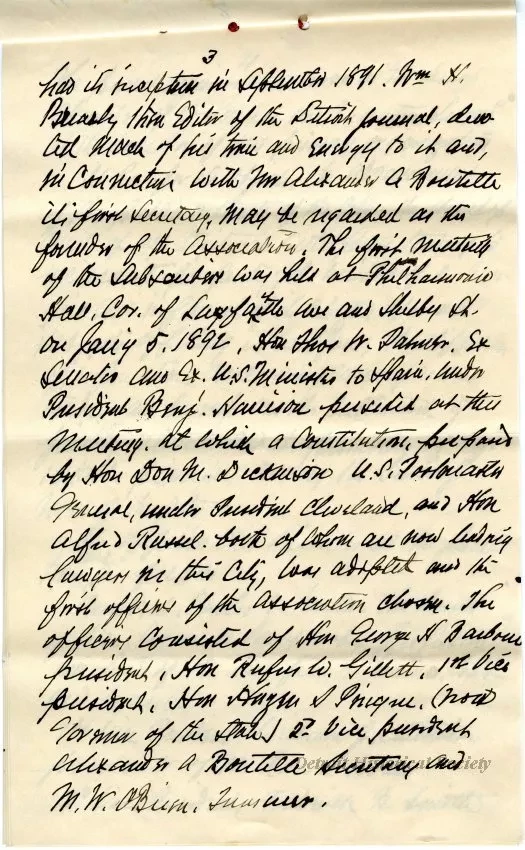 3
had its inception in September 1891. Wm H.
Brearly then Editor of the Detroit Journal, devo
ted much of his time and energy to it and,
in Connection with Mr Alexander A Boutelle
its first Secretary, may be regarded as the
founder of the Association. The first meeting
of the Subscribers was held at Philharmonic
Hall, Cor. of Lafayette Ave and Shelby St.
on Jan'y 5. 1892, Hon Thos W. Palmer. Ex
Senator and Ex. U.S. Minister to Spain, under
President Benj. Harrison presided at this
Meeting. at which a Constitution, prepared
by Hon Don M. Dickinson U.S. Postmaster
General, under President Cleveland, and Hon
Alfred Russel. both of whom are now leading
lawyers in this City, was adopted and the
first officers of the Association chosen. The
officers Consisted of Hon George H Barbour
president, Hon Rufus W. Gillett, 1st Vice
president, Hon Hazen S Pingree, (now
Governor of the State) 2d Vice president
Alexander A Boutelle Secretary and
M. W. O'Brien. Treasurer.
Detroit Historical Society